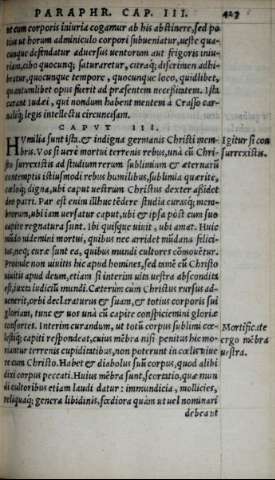 PARAPHR. CAP. III. 423
ne cum corporis iniuria cogamur ab his abstinere, sed po
tius ut horum adminiculo corpori subueniatur, ueste qua-
cunque defendatur aduersus uentorum aut frigoris iniu-
riam, cibo quocunque saturaretur, citraque discrimen adhi
beatur, quocunque tempore, quocunque loco, quidlibet,
quantumlibet opus fuerit ad præsentem necessitatem. Ista
curant Iudæi, qui nondum habent mentem à Crasso car-
naliq; legis intellectu circuncisam.
CAPVT III.
Humilia sunt ista, & indigna germanis Christi mem-
bris. Vos si uerè mortui terrenis rebus, unà cũ Chri-
sto surrexistis ad studium rerum sublimium & æternarũ
contemptis istiusmodi rebus humilibus, sublimia quærite,
cœloq; digna, ubi caput uestrum Christus dexter assidet
deo patri. Par est enim illhuc tẽdere studia curasq; mem-
brorum, ubi iam uersatur caput, ubi & ipsa pòst cum suo
capite regnatura sunt. Ibi quisque uiuit, ubi amat. Huic
mũdo uidemini mortui, quibus nec arridet mũdana felici-
tas, neq; curæ sunt ea, quibus mundi cultores cõmouẽtur.
Proinde non uiuitis hic apud homines, sed tamẽ cũ Christo
uiuitis apud deum, etiam si interim uita uestra abscondita
est, iuxta iudiciũ mundi. Cæterùm cum Christus rursus ad-
uenerit, orbi declaraturus & suam, & totius corporis sui
gloriam, tunc & uos unà cũ capite conspiciemini gloriæ
consortes. Interim curandum, ut totũ corpus sublimi cœ-
lestiq; capiti respondeat, cuius mẽbra nisi penitus hic mo-
riantur terrenis cupiditatibus, non poterunt in cœlis uiue
re cum Christo. Habet & diabolus suũ corpus, quod alibi
dixi corpus peccati. Huius mẽbra sunt, scortatio, quæ mun
di cultoribus etiam laudi datur: immundicia, mollicies,
reliquaq; genera libidinis, fœdiora quàm ut uel nominari
debeant
Igitur si con
surrexistis.
Mortificate
ergo mẽbra
uestra.